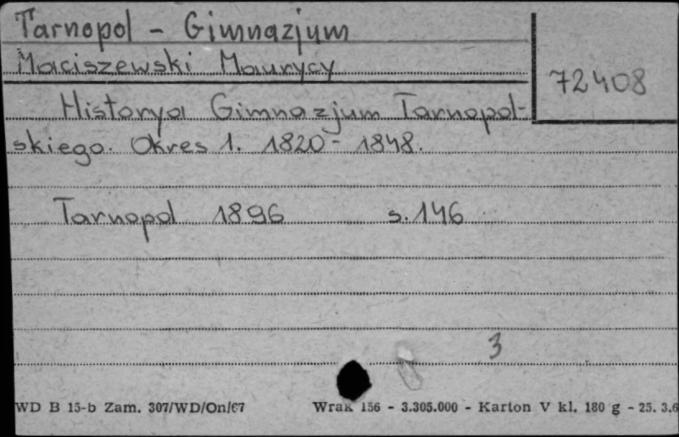 Tarnopol - Gimnazjum
Maciszewski Maurycy
72408
Historya Gimnazjum Tarnopol-
skiego. Okres 1. 1820 - 1848.
Tarnopol 1896 s. 146
3
WD B 15-b Zam. 307/WD/On/67 Wrak 156 - 3.305.000 - Karton V kl. 180 g - 25. 3.6